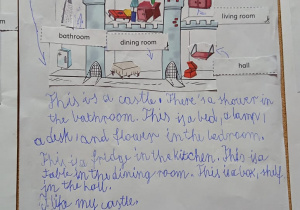 living room
bathroom
dining room
hall
This is a castle. There's a shower in
the bathroom. This is a bed, a lamp,
a desk, and flower in the bedroom.
This is a fridge in the kitchen. This is a
table in the dining room. This is a box, shelf
in the hall.
I like my castle.